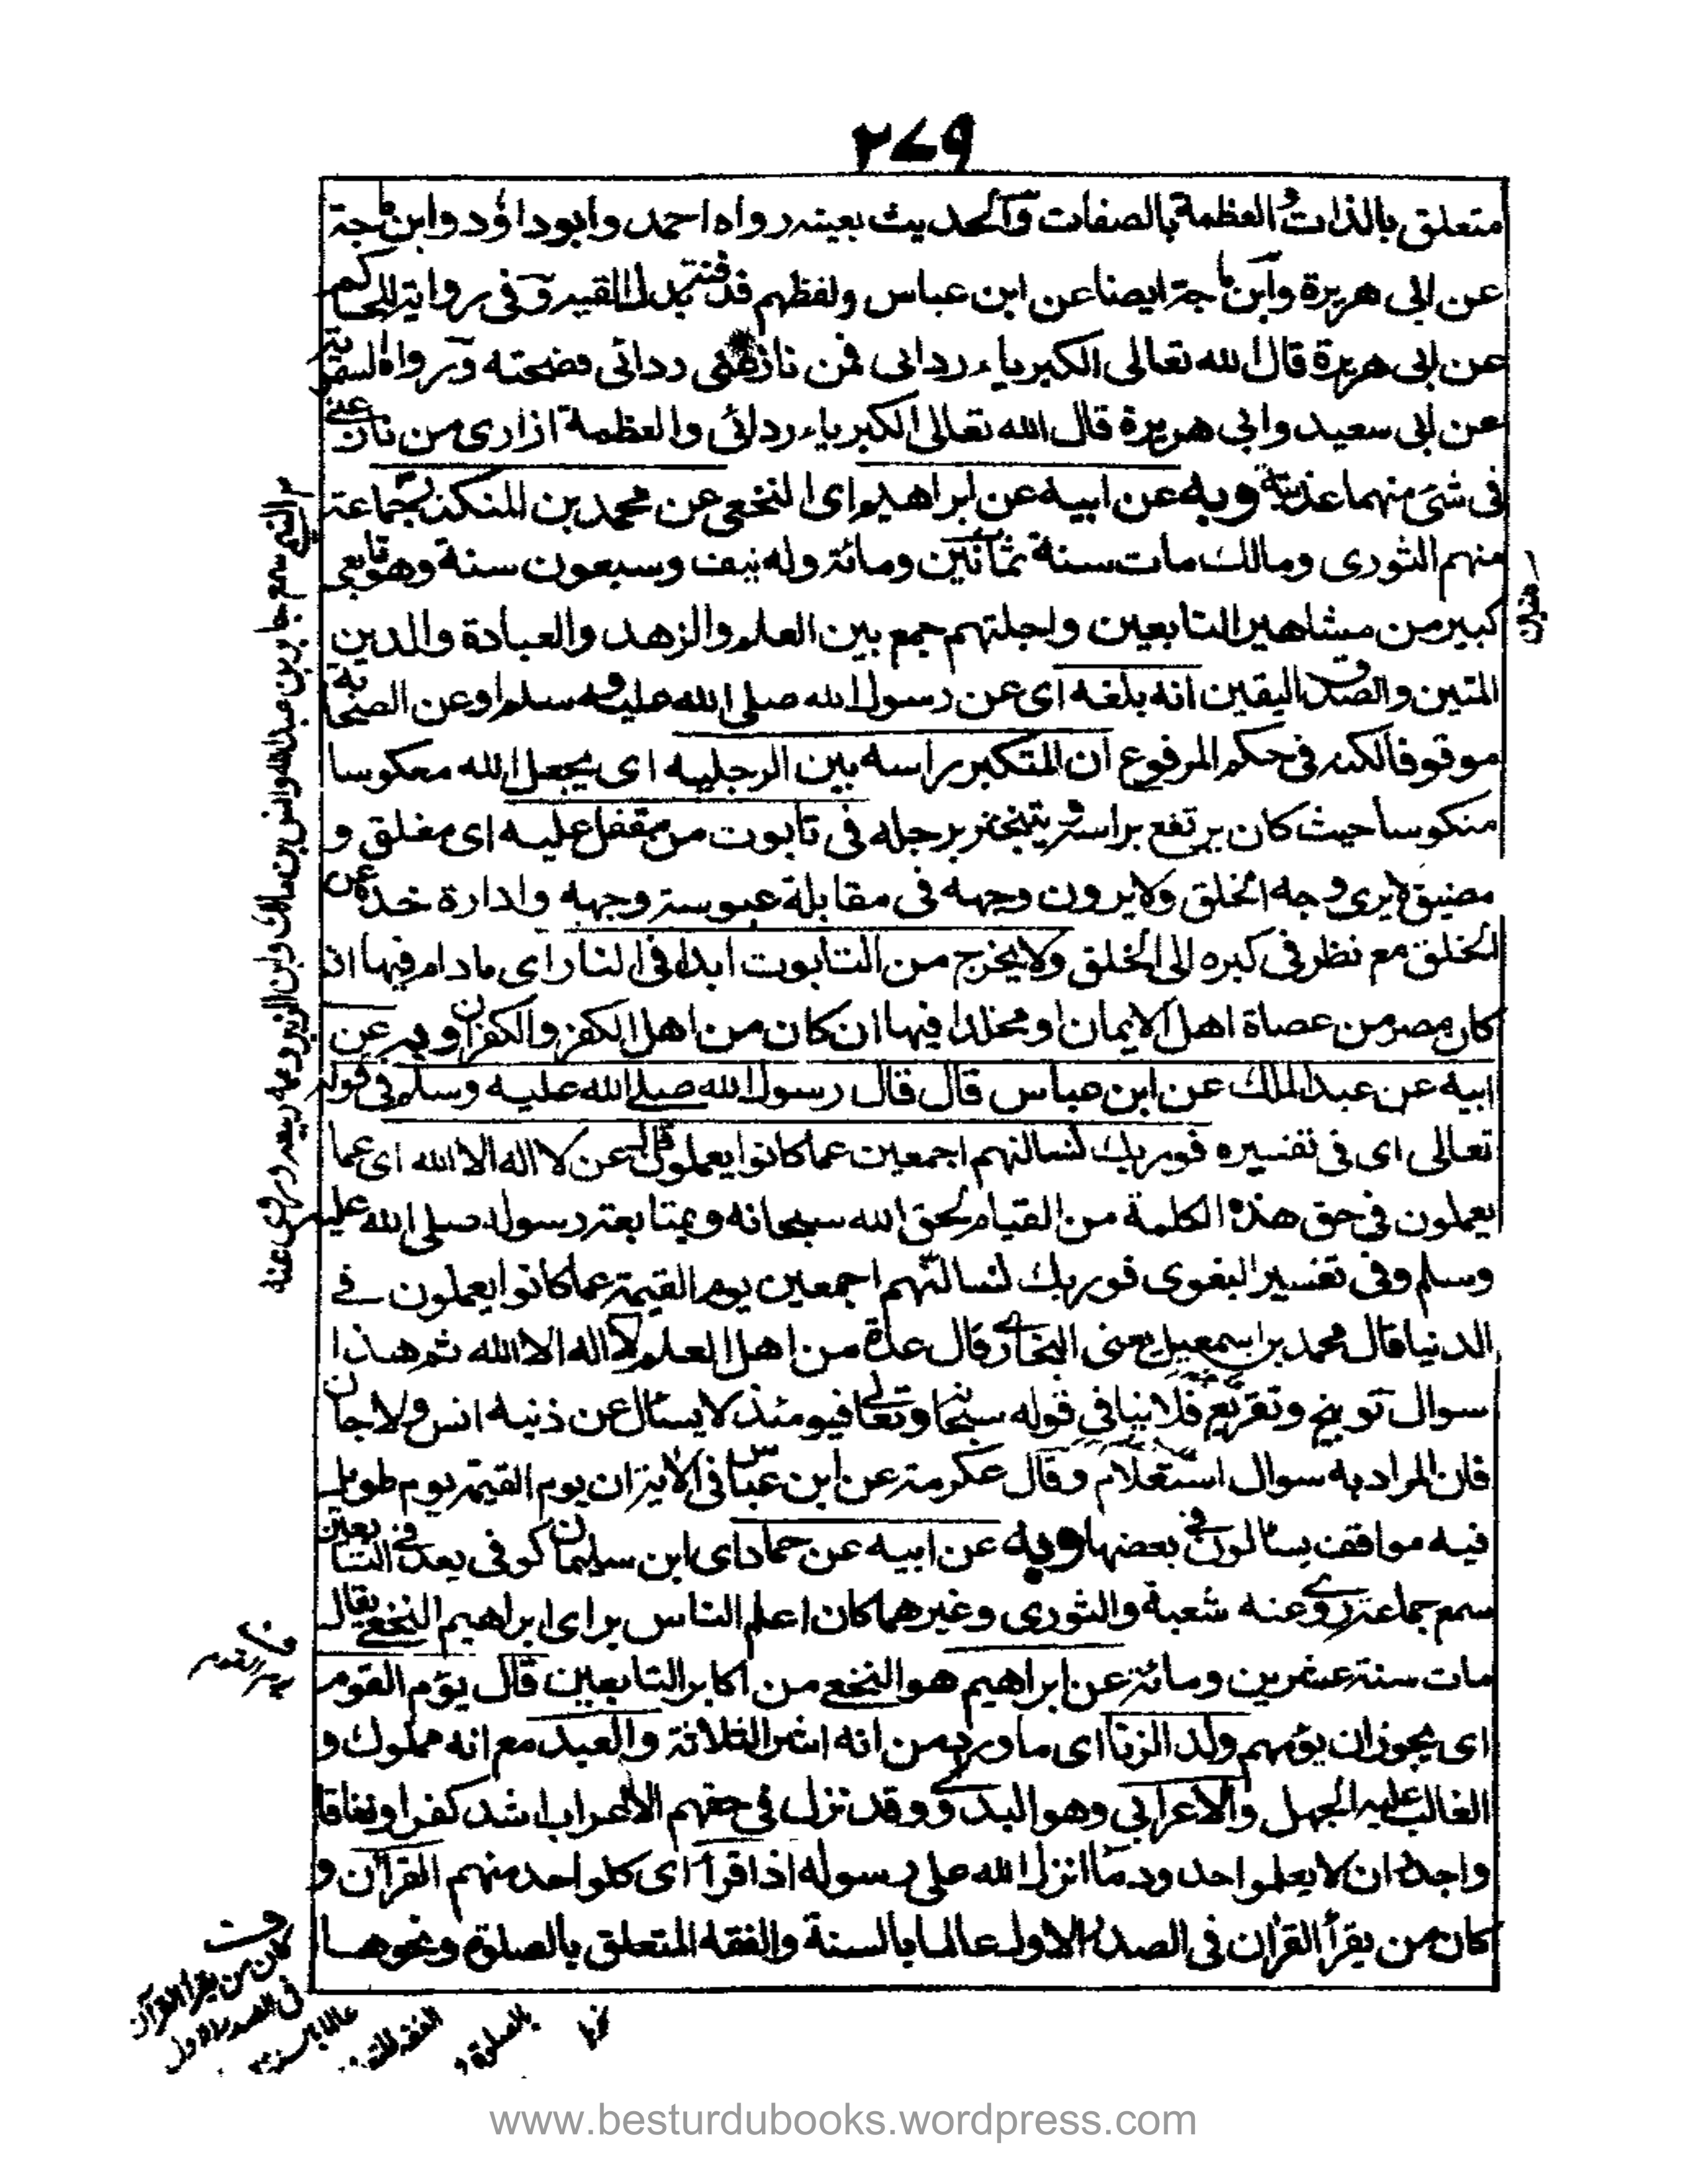 ٢٧٩
متعلق بالذات والعظمة بالصفات والحديث بعينه رواه احمد وابوداؤد وابن ماجة
عن ابى هريرة وابن ماجة ايضا عن ابن عباس ولفظهم قذفته بدل القيته وفى رواية للحاكم
عن ابى هريرة قال الله تعالى الكبرياء ردائى فمن نازعنى ردائى قصمته ورواه
عن ابى سعيد وابي هريرة قال الله تعالى الكبرياء ردائى والعظمة ازارى من نازعنى
فى شئ منهما عذبته وبه عن ابيه عن ابراهيم اى النخعى عن محمد بن المنكدر جماعة
منهم الثورى ومالك مات سنة ثمانين ومائة وله نيف وسبعون سنة وهو تابعى
كبير من مشاهير التابعين واجلتهم جمع بين العلم والزهد والعبادة والدين
المتين والصدق واليقين انه بلغه اى عن رسول الله صلى الله عليه وسلم او عن الصحابة
موقوفا لكنه فى حكم المرفوع ان المتكبر راسه بين الرجليه اى يجعل الله معكوسا
منكوسا حيث كان يرتفع براسه ويتبختر برجله فى تابوت من مقفل عليه اى مغلق و
مضيق لايرى وجه الخلق ولايرون وجهه فى مقابلة عبوسة وجهه وادارة خده عن
الخلق مع نظر فى كبره الى الخلق ولايخرج من التابوت ابدا فى النار اى مادام فيها ان
كان من عصاة اهل الايمان او مخلدا فيها ان كان من اهل الكفر والكفران وبه عن
ابيه عن عبدالملك عن ابن عباس قال قال رسول الله صلى الله عليه وسلم فى قوله
تعالى اى فى تفسيره فوربك لنسالنهم اجمعين عما كانوا يعملون قال عن لا اله الا الله اى عما
يعملون فى حق هذه الكلمة من القيام لحق الله سبحانه وبمتابعة رسوله صلى الله عليه
وسلم وفى تفسير البغوى فوربك لنسالنهم اجمعين يوم القيمة عما كانوا يعملون فے
الدنيا قال محمد بن اسمعيل يعنى البخارے قال عدة من اهل العلم لا اله الا الله ثم هذا
سوال توبيخ وتقريع فلا ينافي قوله سبحانه وتعالى فيومئذ لايسئال عن ذنبه انس ولا جان
فان المراد به سوال استعلام وقال عكرمة عن ابن عباس فى الاية ان يوم القيمة يوم طويل
فيه مواقف يسئالون فى بعضها وبه عن ابيه عن حماد اى ابن سليمان كوفى يعد فى التابعين
سمع جماعة روى عنه شعبة والثورى وغيرهما كان اعلم الناس براى ابراهيم النخعے يقال
مات سنة عشرين ومائة عن ابراهيم هو النخعے من اكابر التابعين قال يؤم القوم
اى يجوز ان يؤمهم ولد الزنا اى ما ورد من انه اشر الثلاثة والعبد مع انه مملوك و
الغالب عليه الجهل والاعرابى وهو البدوے وقد نزل فى حقهم الاعراب اشد كفرا ونفاقا
واجدر ان لا يعلموا حدود ما انزل الله على رسوله اذا قرأ اى كل واحد منهم القرآن و
كان من يقرأ القرآن فى الصدر الاول عالما بالسنة والفقه المتعلق بالصلوة ونحوها
سمع جابر بن عبدالله وانس بن مالك وابن الزبير وعمه ربيعه
كان من يقرا القرآن
فى الصدر الاول
www.besturdubooks.wordpress.com